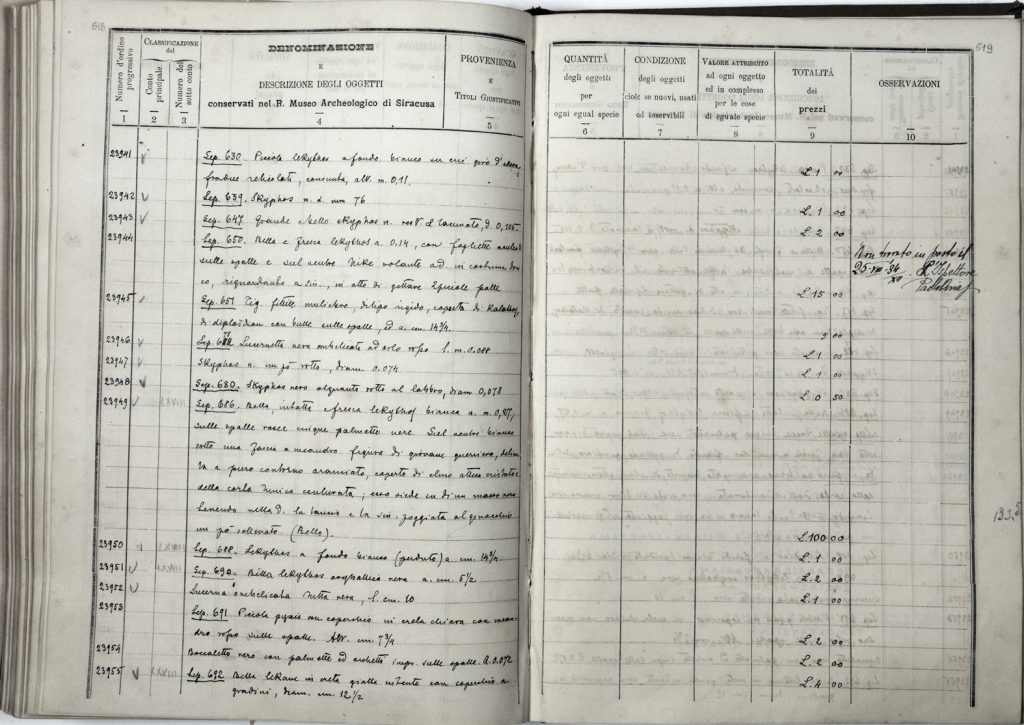 618
Numero d'ordine progressivo
CLASSIFICAZIONE del
Conto principale
Numero del sotto conto
DENOMINAZIONE
E
DESCRIZIONE DEGLI OGGETTI
conservati nel R. Museo Archeologico di Siracusa
PROVENIENZA
E
TITOLI GIUSTIFICATIVI
1 2 3 4 5
23941 Sep. 630. Piccola lekythos a fondo bianco su cui
fradue reticolati, consunta, alt. m. 0,11.
23942 Sep. 639. Skyphos n. d. mm 76
23943 Sep. 647. Grande skyphos n. d. 0,105
23944 Sep. 650. Bella e fresca lekythos a. 0.14, con fogliette
sulle spalle e sul ventre Nike volante ad in costume
riguardante a sin., in atto di gettare speciale palle
23945 Sep. 651 Fig. fittile muliebre di tipo rigido, coperta di Kalathos,
di diploidion con bulle sulle spalle, ed a. cm. 14 3/4.
23946 Sep. Lucernetta nera ombelicata ad orlo rotto l. m. 0.088
23947 Skyphos n. un pò rotto, diam. 0.074
23948 Sep. 680. Skyphos nero alquanto rotto al labbro, diam 0,078
23949 Sep. 686. Bella, intatta e fresca lekythos bianca a. m. 0,
sulle spalle rosse cinque palmette nere. Sul ventre bianco
sotto una fascia a meandro figura di giovane guerriero,
a puro contorno aranciato, coperto di elmo attico cristato e
della corta tunica centurata, esso siede su di un masso nero
tenendo nella d. la lancia e la sin. poggiata al ginocchio
un pò sollevato. (Bello).
23950 Sep. 688. Lekythos a fondo bianco (perduto) a cm. 14 3/4
23951 Sep. 690. Bella lekythos nera a. cm. 5 1/2
23952 Lucerna ombelicata netta nera, l. cm. 10
23953 Sep. 691 Piccola pyxis con coperchio in creta chiara con
sulle spalle. Alt. cm. 7 3/4
23954 Boccaletto nero con palmette ed archetti impr. sulle spalle. A. 0.072
23955 Sep. 692. Bella lekane in creta gialla con coperchio a
gradini, diam. cm. 12 1/2
619
QUANTITÀ
degli oggetti
per
ogni egual specie
CONDIZIONE
degli oggetti
cioè: se nuovi, usati
od inservibili
VALORE ATTRIBUITO
ad ogni oggetto
od in complesso
per le cose
di eguale specie
TOTALITÀ
dei
prezzi
OSSERVAZIONI
6 7 8 9 10
L. 1 00
L. 1 00
L. 2 00
Non trovato in posto il
25 VIII '34 XII L'Ispettore
L. 15 00
5 00
L. 1 00
L. 1 00
L. 0 50
133.5
L. 100 00
L. 1 00
L. 2 00
L. 1 00
L. 2 00
L. 2 00
L. 4 00